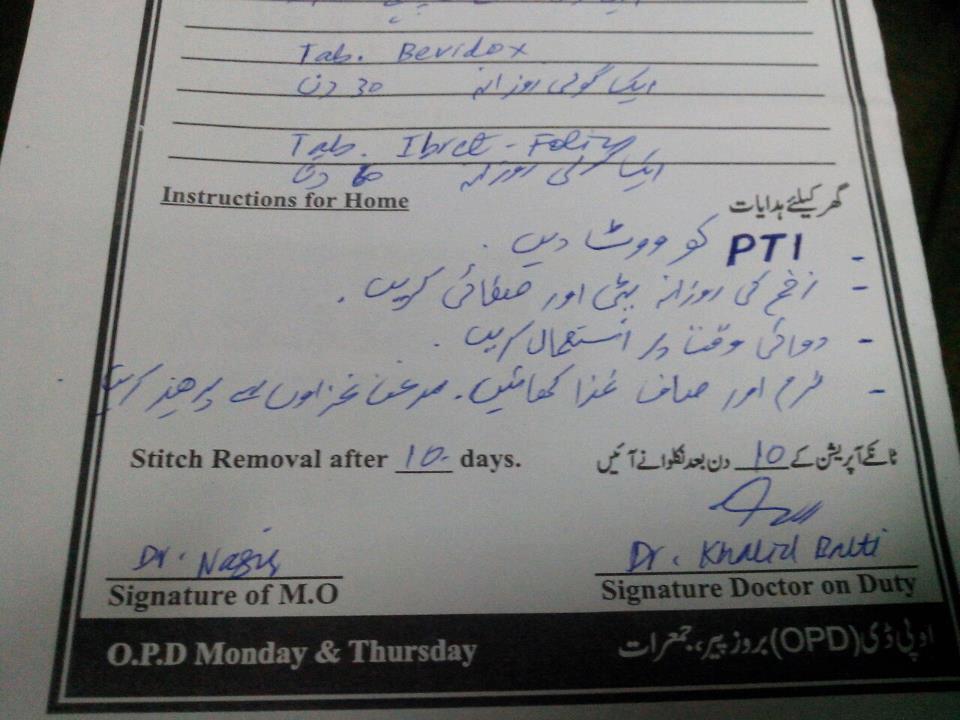 Tab. Bevidox
ایک گولی روزانہ 30 دن
Tab. Ibret-Folic
ایک گولی روزانہ دن
Instructions for Home گھر کیلئے ہدایات
- PTI کو ووٹ دیں.
- زخم کی روزانہ پٹی اور صفائی کریں.
- دوائی وقت پر استعمال کریں.
- نرم اور صاف غذا کھائیں. مرغن غذاوں سے پرہیز کریں.
Stitch Removal after 10 days. ٹانکے آپریشن کے 10 دن بعد نکلوانے آئیں
Dr. Khalid Balti
Signature of M.O Signature Doctor on Duty
O.P.D Monday & Thursday او پی ڈی (OPD) بروز پیر، جمعرات